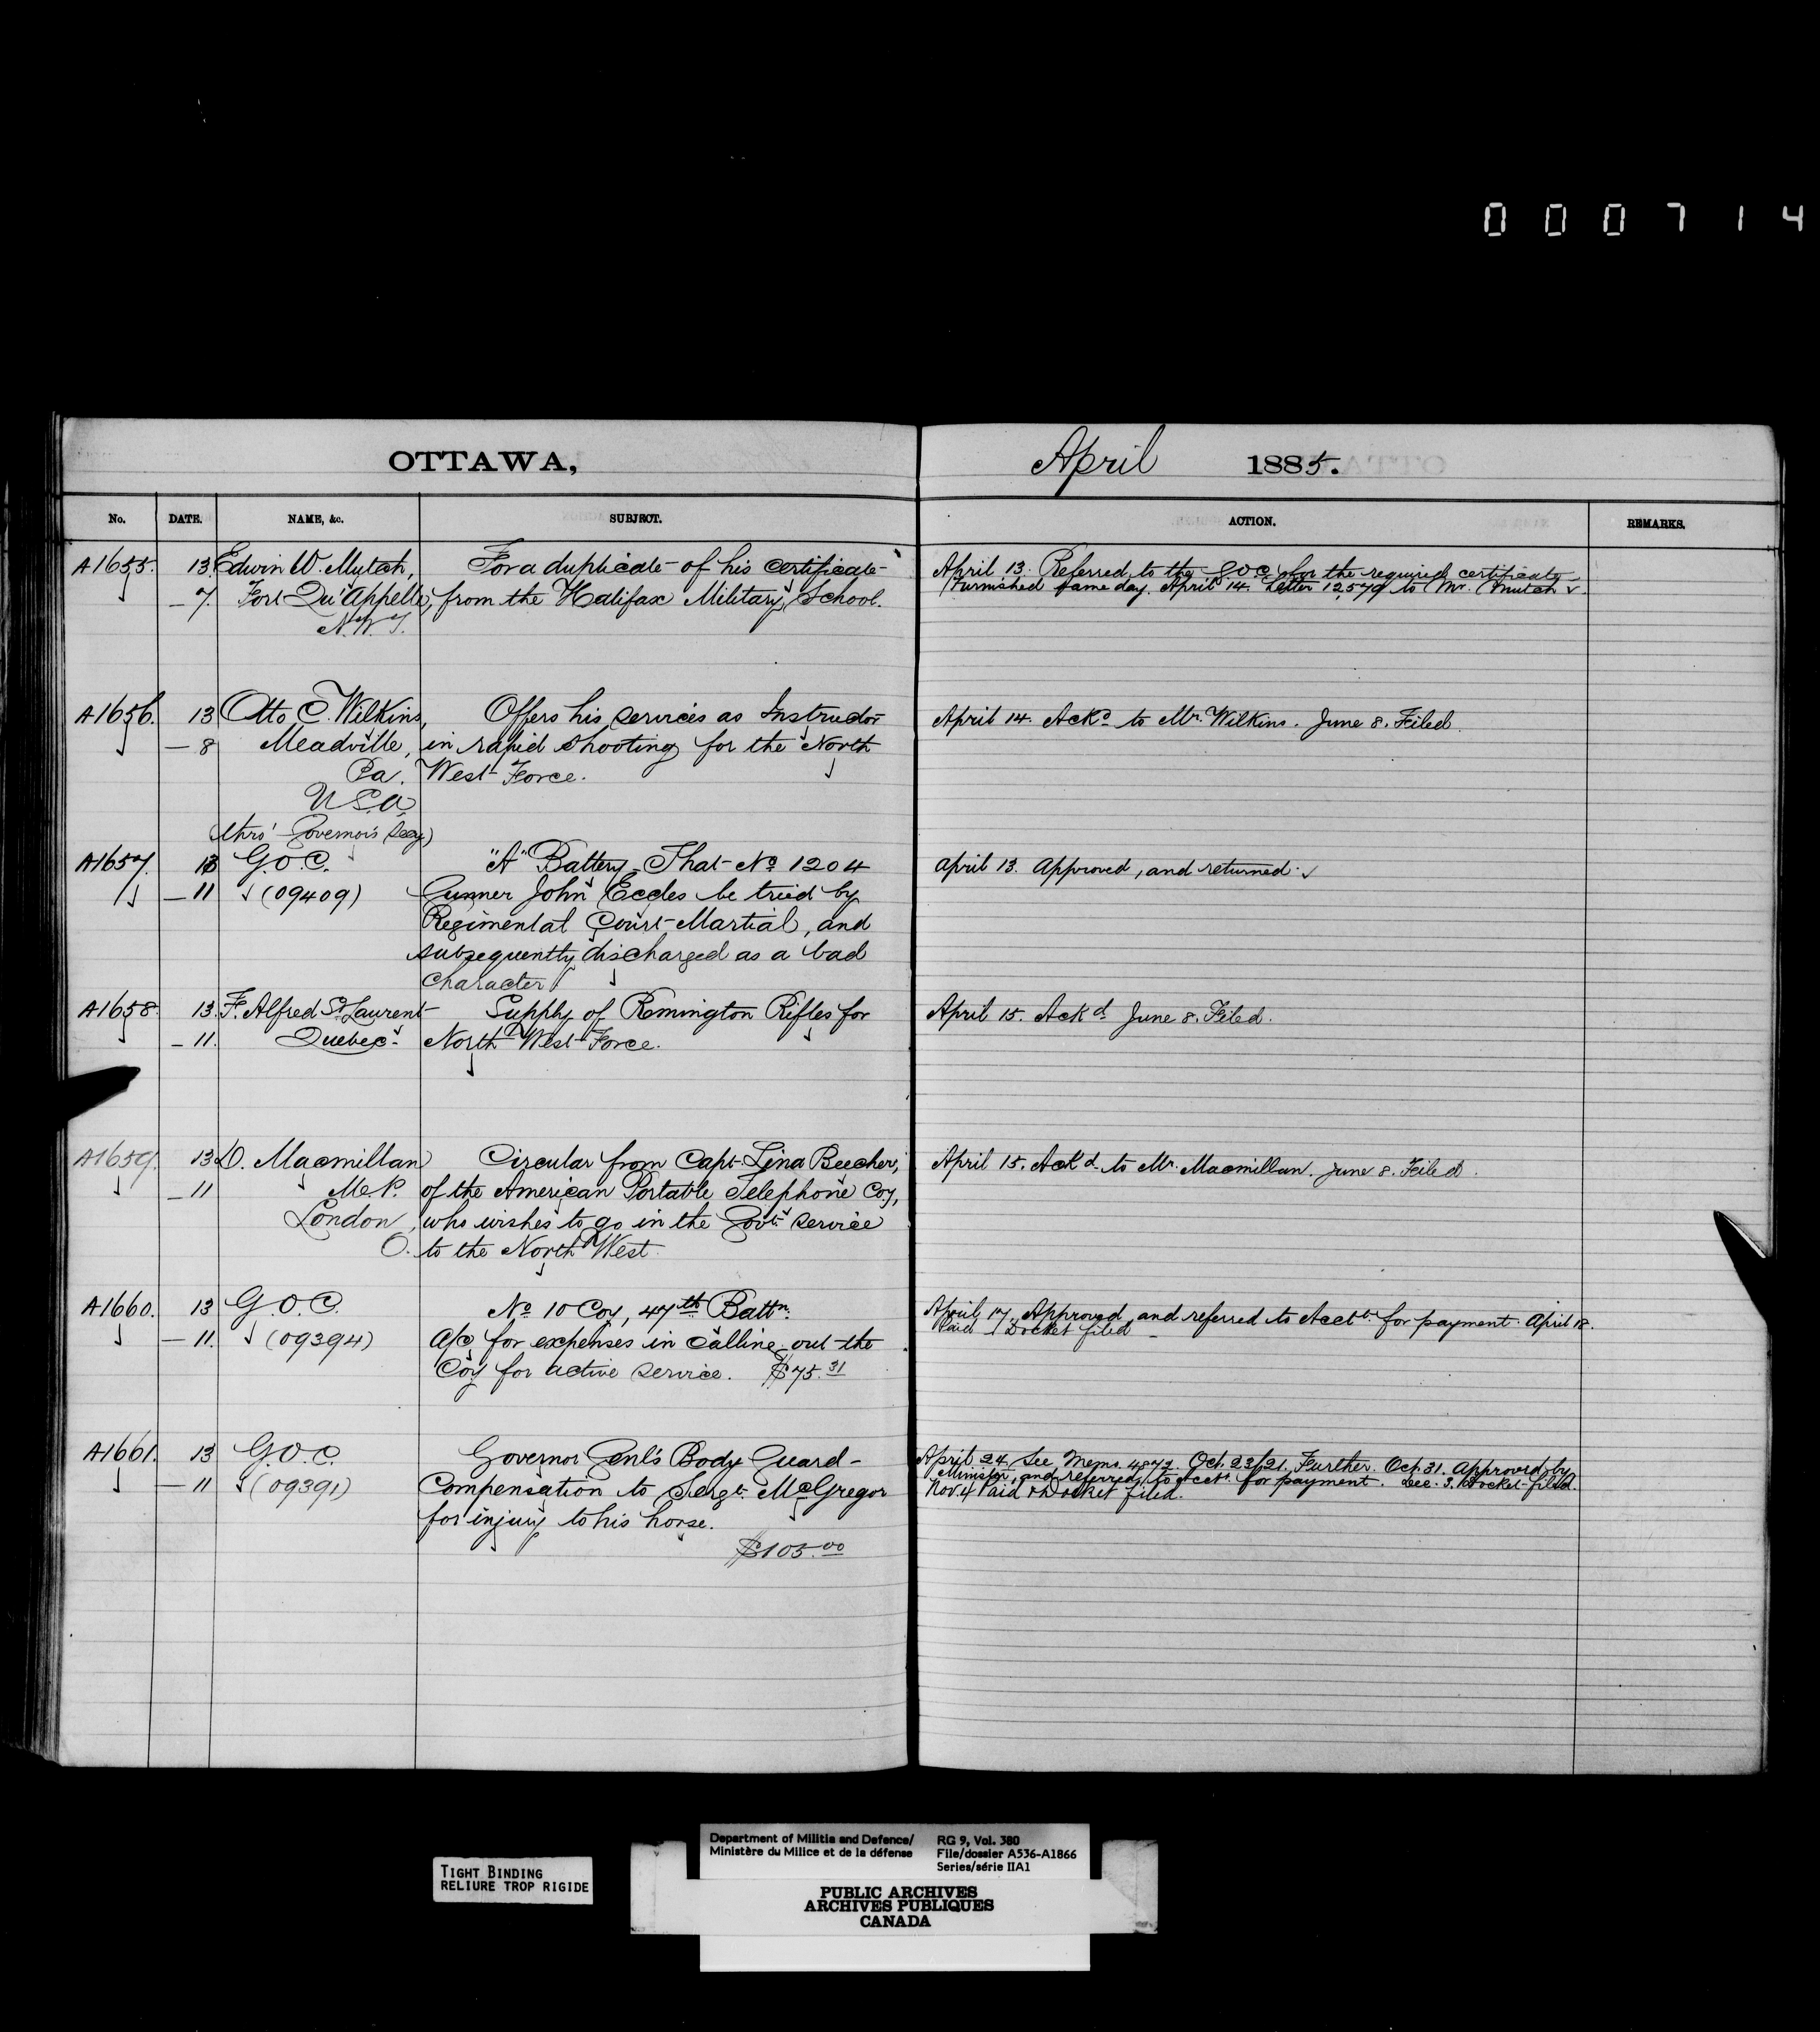 000714
OTTAWA, April 1885.
No. DATE. NAME, &c. SUBJECT. ACTION. REMARKS.
A1655. 13 Edwin W. Mutch, For a duplicate of his certificate April 13. Referred to the GOC who the required certificate
– 7. Fort Qu'Appelle, from the Halifax Military School. furnished same day. April 14. Letter 12,579 to Mr. Mutch
N.W.T.
A1656. 13 Otto C. Wilkins, Offers his services as Instructor April 14. Ackd to Mr. Wilkins. June 8. Filed.
– 8 Meadville, in rapid shooting for the North
Pa. West Force.
U.S.A
(thro' Governor's Secy)
A1657. 13 G.O.C. "A" Battery – That No 1204 April 13. Approved, and returned.
– 11 (09409) Gunner John Eccles be tried by
Regimental Court-Martial, and
subsequently discharged as a bad
character
A1658 13. F. Alfred St. Laurent Supply of Remington Rifles for April 15. Ackd June 8. Filed.
– 11. Quebec. North West Force.
A1659. 13 D. Macmillan Circular from Capt. Lina Beecher, April 15. Ackd to Mr. Macmillan. June 8. Filed.
– 11 M.P. of the American Portable Telephone Coy,
London, who wishes to go in the Govt. service
O. to the North West.
A1660. 13 G.O.C. No 10 Coy, 47th Battn. April 17. Approved, and referred to Acctt. for payment. April 18.
– 11. (09394) A/c for expenses in calling out the Paid – Docket filed –
Coy for active service. $75.31
A1661. 13 G.O.C. Governor Genl's Body Guard – April 24. See Memo 4872. Oct. 23/21. Further. Oct 31. Approved by
– 11 (09391) Compensation to Sergt. McGregor Minister, and referred to Acctt. for payment. Dec. 3. Docket filed.
for injury to his horse. Nov. 4 Paid & Docket filed.
$105.00
TIGHT BINDING
RELIURE TROP RIGIDE
Department of Militia and Defence/
Ministère du Milice et de la défense
RG 9, Vol. 380
File/dossier A536-A1866
Series/série IIA1
PUBLIC ARCHIVES
ARCHIVES PUBLIQUES
CANADA